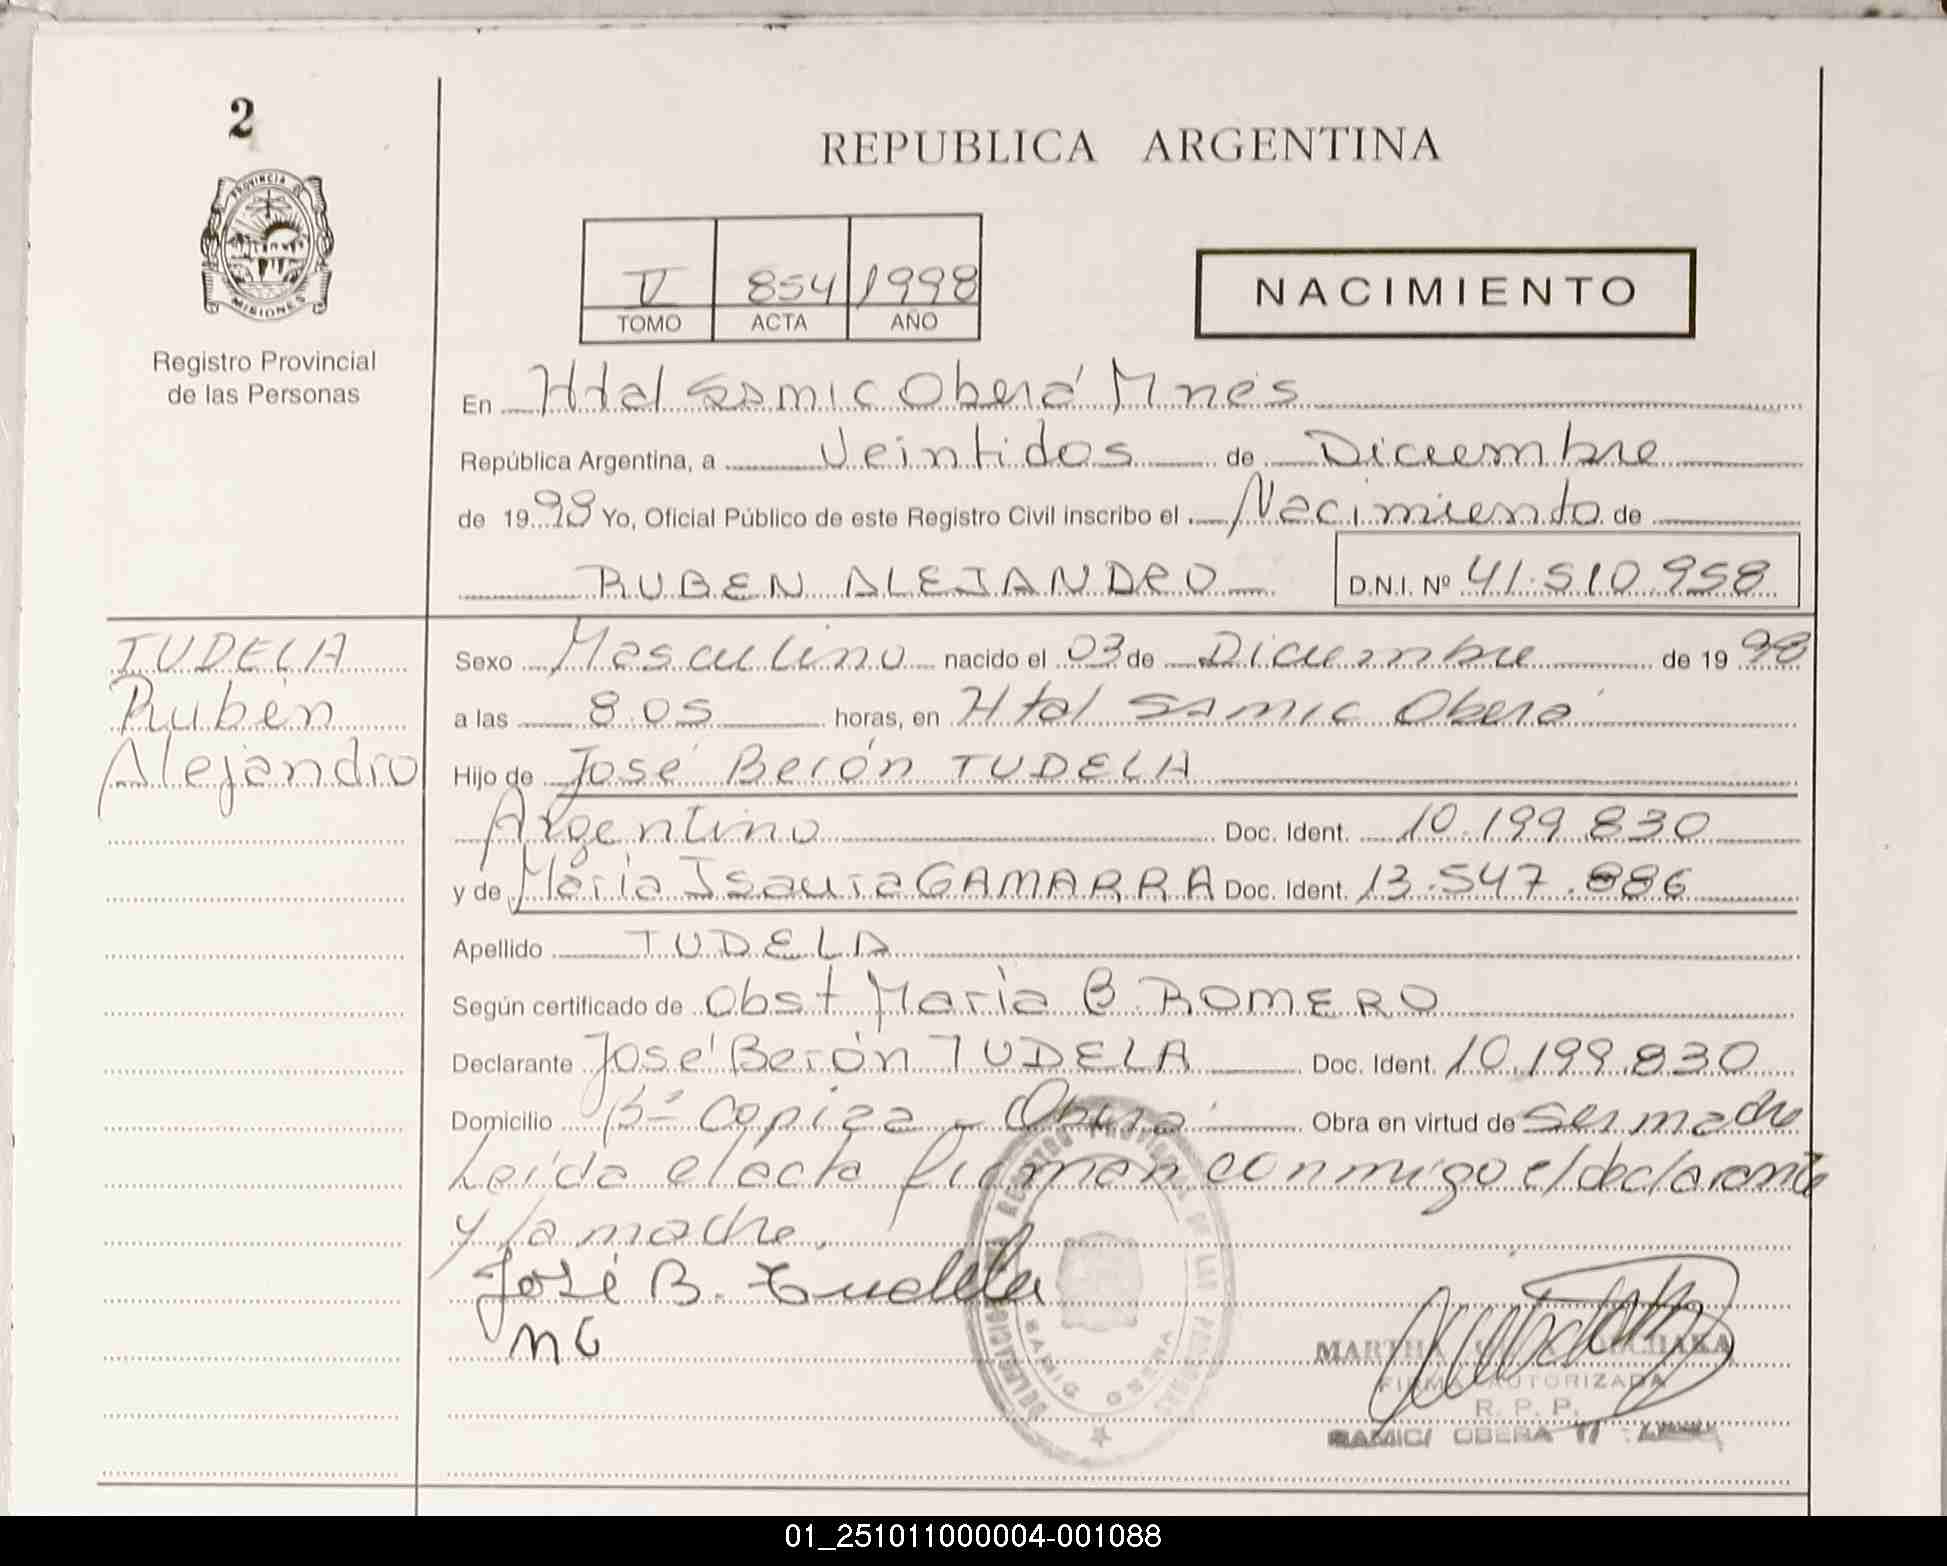 2
REPUBLICA ARGENTINA
PROVINCIA DE
MISIONES
Registro Provincial
de las Personas
V 854 1998
TOMO ACTA AÑO
NACIMIENTO
En Htal Samic Oberá Mnes
República Argentina, a Veintidos de Diciembre
de 1998 Yo, Oficial Público de este Registro Civil inscribo el Nacimiento de
RUBEN ALEJANDRO D.N.I. Nº 41.510.958
TUDELA
Rubén
Alejandro
Sexo Masculino nacido el 03 de Diciembre de 1998
a las 8.05 horas, en Htal Samic Oberá
Hijo de José Berón TUDELA
Argentino Doc. Ident. 10.199.830
y de María Isaura GAMARRA Doc. Ident. 13.547.886
Apellido TUDELA
Según certificado de Obst María B. ROMERO
Declarante José Berón TUDELA Doc. Ident. 10.199.830
Domicilio Bº Copiza - Oberá Obra en virtud de ser madre
Leída el acta firman conmigo el declarante
y la madre.
José B. Tudela
MG
DELEGACION REGISTRO PROVINCIAL DE LAS PERSONAS
SAMIC OBERA
MARTHA
FIRMA AUTORIZADA
R. P. P.
SAMIC/ OBERA
01_251011000004-001088